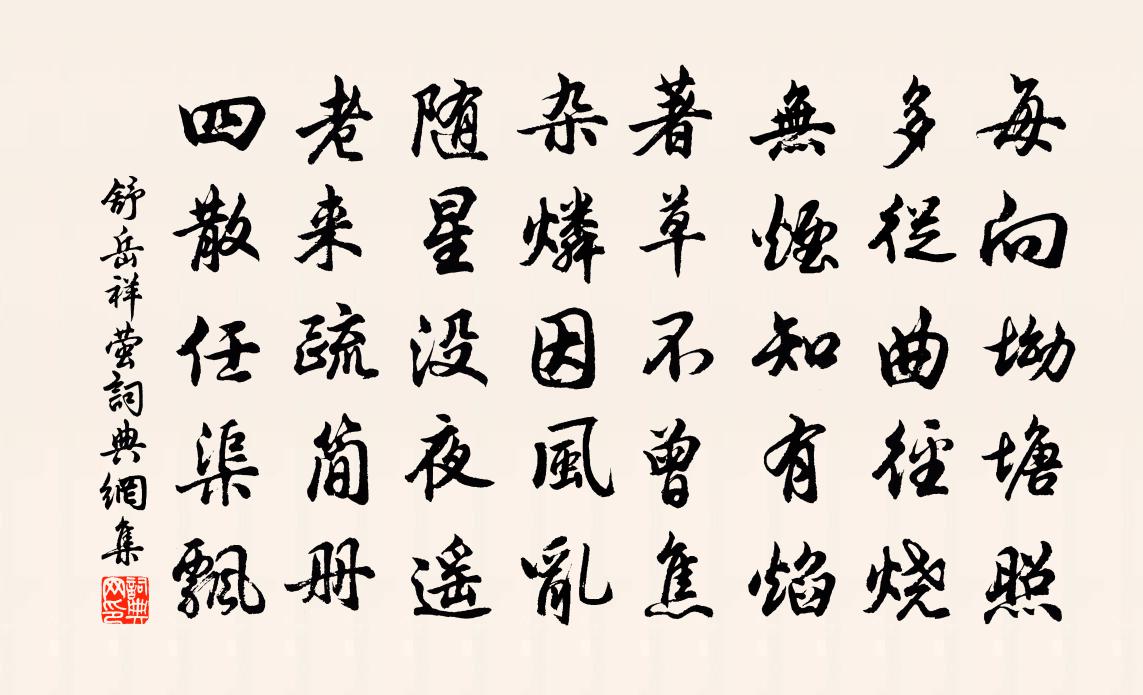 每向坳塘照
多從曲徑烧
無煙知有焰
著草不曾焦
杂燐因風亂
随星没夜遥
老来疏简册
四散任渠飄
舒岳祥萤詞典網集
詞典网印